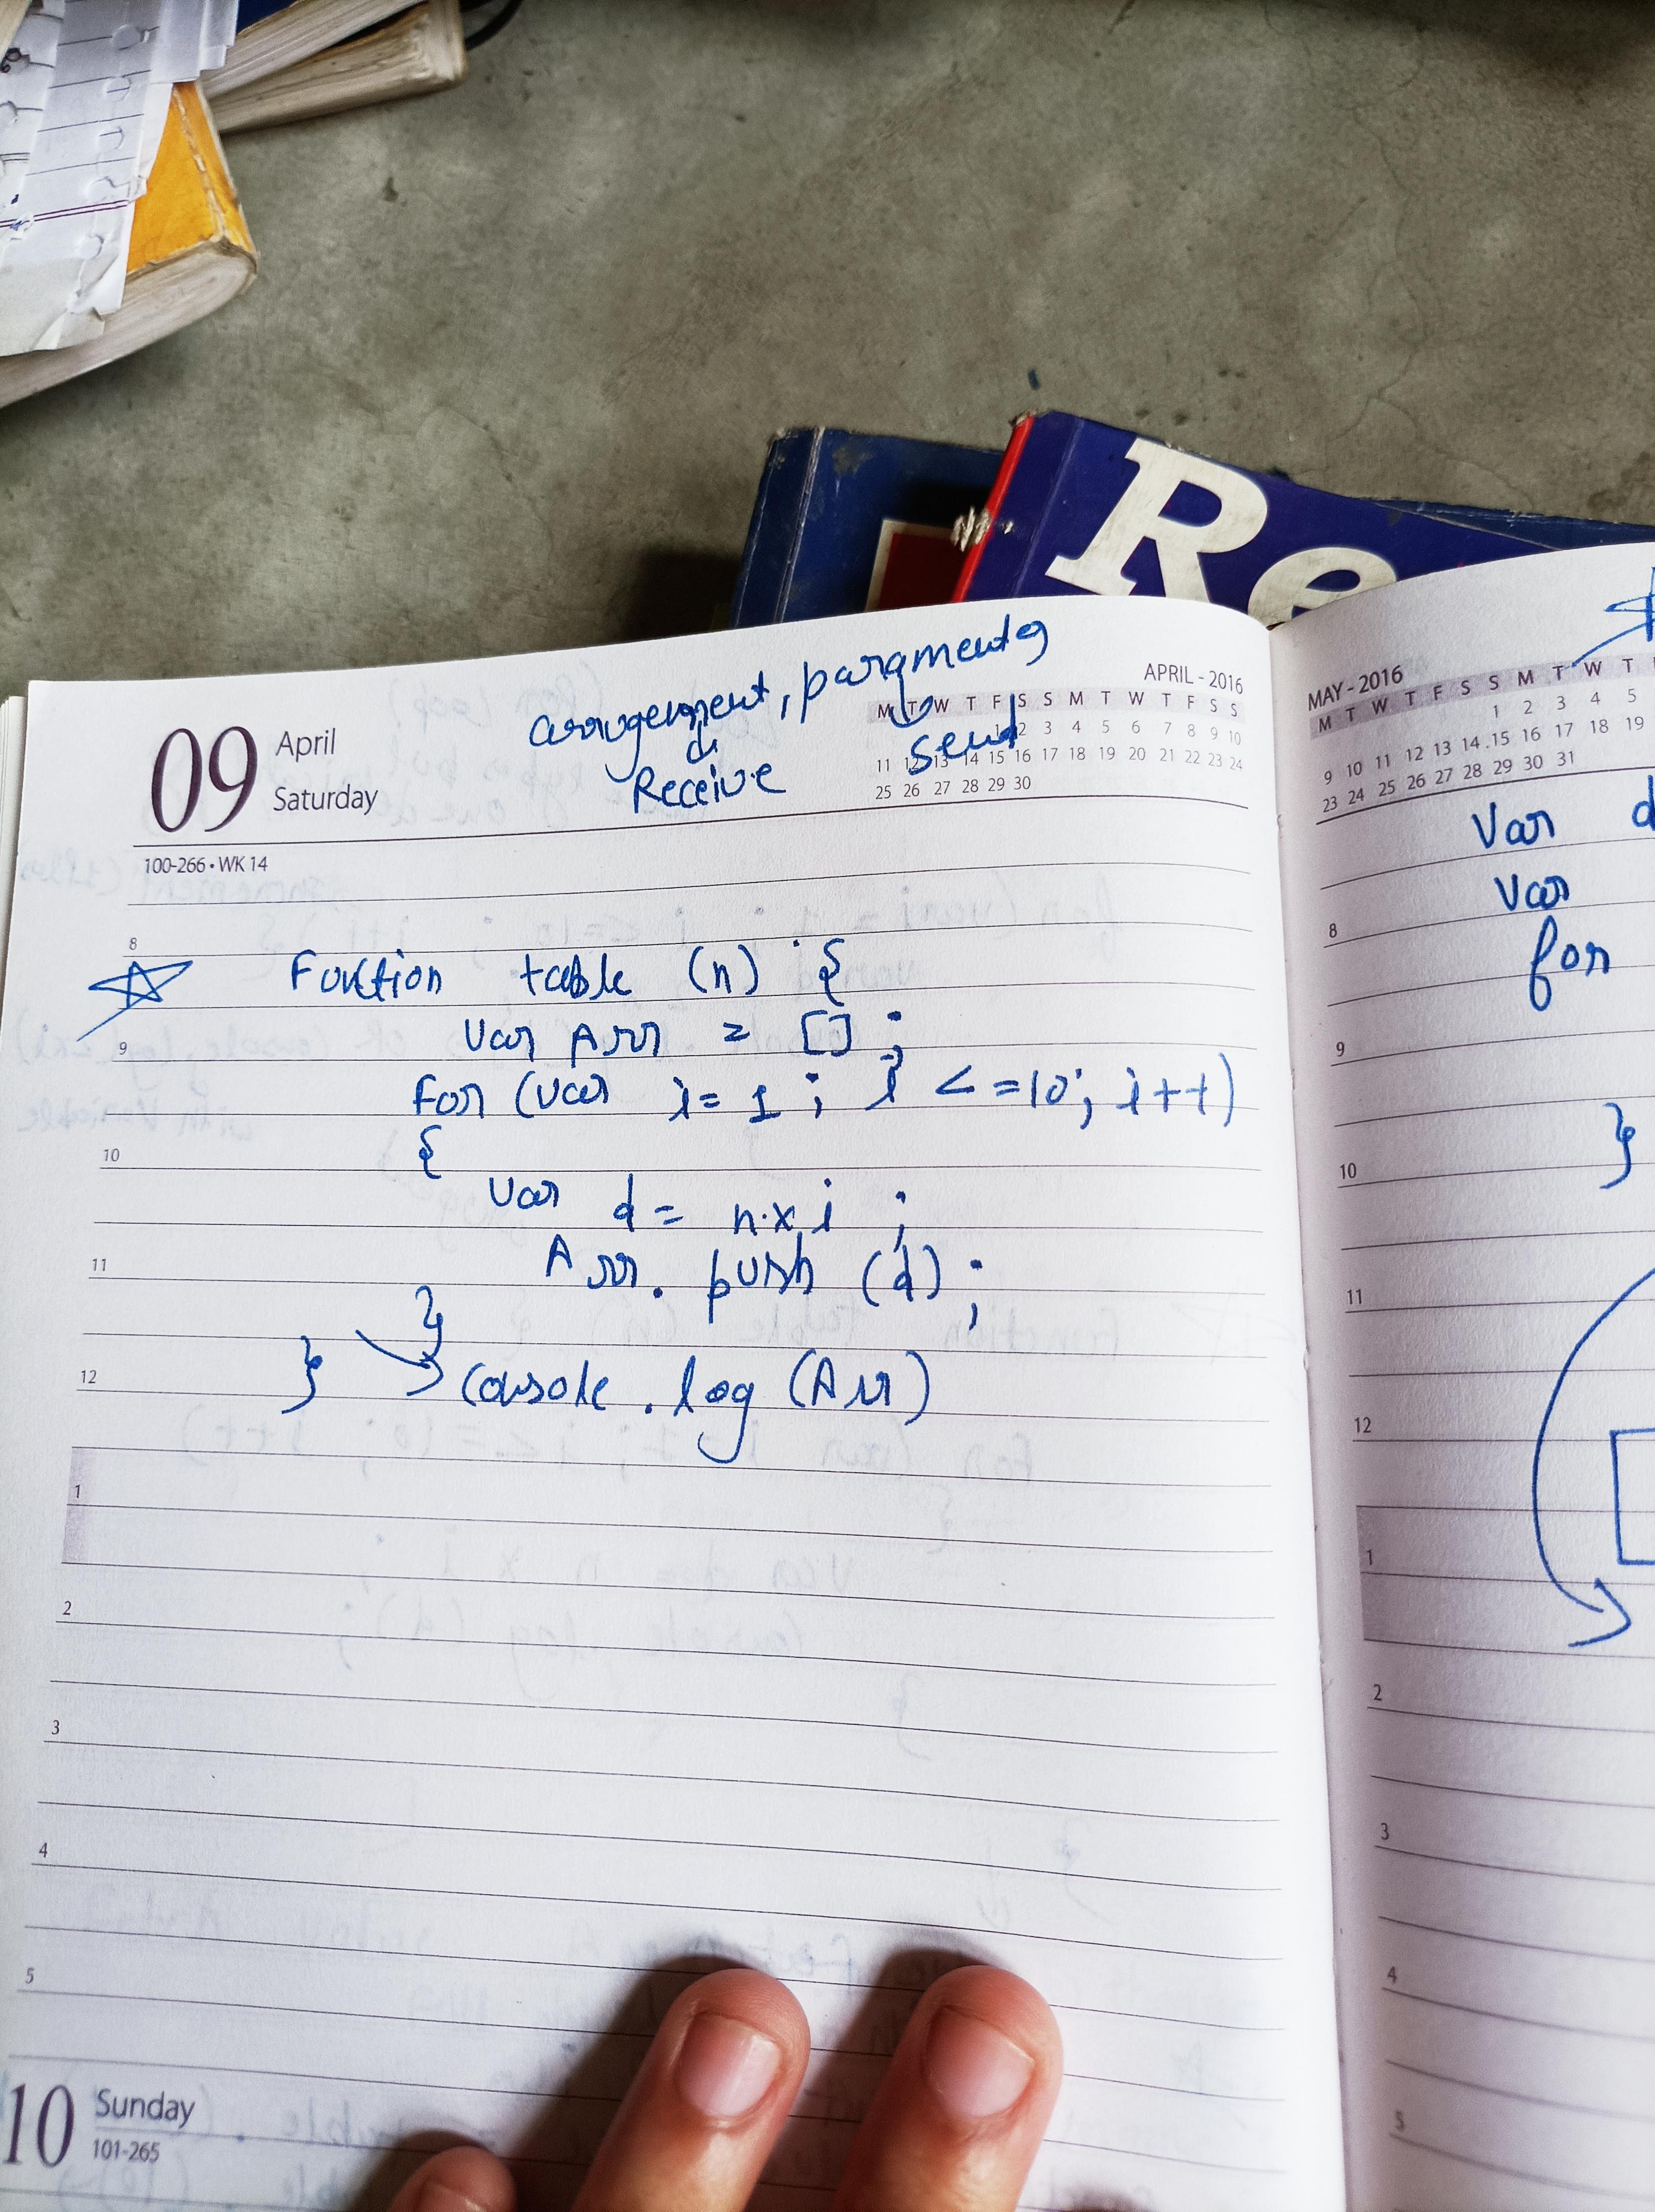 Re
arrugement, paraments
Receive
send
09
April
Saturday
100-266 • WK 14
APRIL - 2016
M T W T F S S M T W T F S S
1 2 3 4 5 6 7 8 9 10
11 12 13 14 15 16 17 18 19 20 21 22 23 24
25 26 27 28 29 30
8
Function table (n) {
9
Var Arr = [] ;
for (var i= 1 ; i <=10; i++)
10
{
var d = n x i ;
11
Arr. push (d) ;
}
12
} console . log (Arr)
1
2
3
4
5
10
Sunday
101-265
MAY - 2016
M T W T F S S M T W T
1 2 3 4 5
9 10 11 12 13 14 15 16 17 18 19
23 24 25 26 27 28 29 30 31
Var d
Var
8
for
9
10
}
11
12
1
2
3
4
5